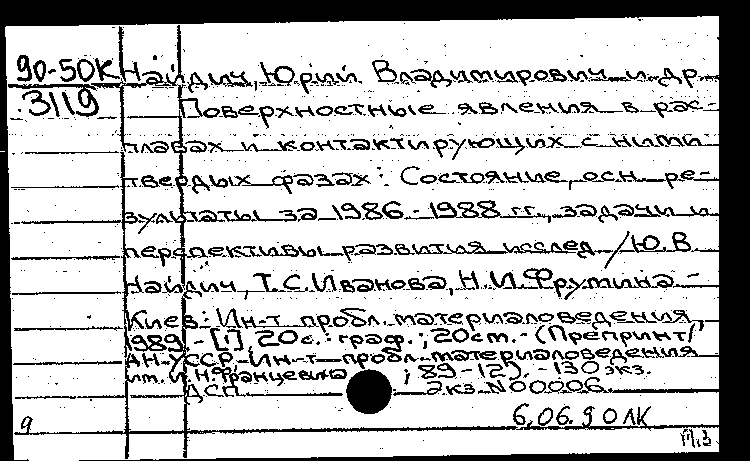 90-50К Найдич, Юрий Владимирович и др.
3119 Поверхностные явления в рас-
плавах и контактирующих с ними
твердых фазах: Состояние, осн. ре-
зультаты за 1986-1988 гг., задачи и
перспективы развития исслед / Ю.В.
Найдич, Т.С. Иванова, Н.И. Фрумина. -
Киев: Ин-т пробл. материаловедения,
1989. - [1], 20 с.: граф.; 20 см. - (Препринт /
АН УССР. Ин-т пробл. материаловедения
им. И.Н. Францевича ; 89-12). - 130 экз.
ДСП Экз. N00006
6.06.90 ЛК
9